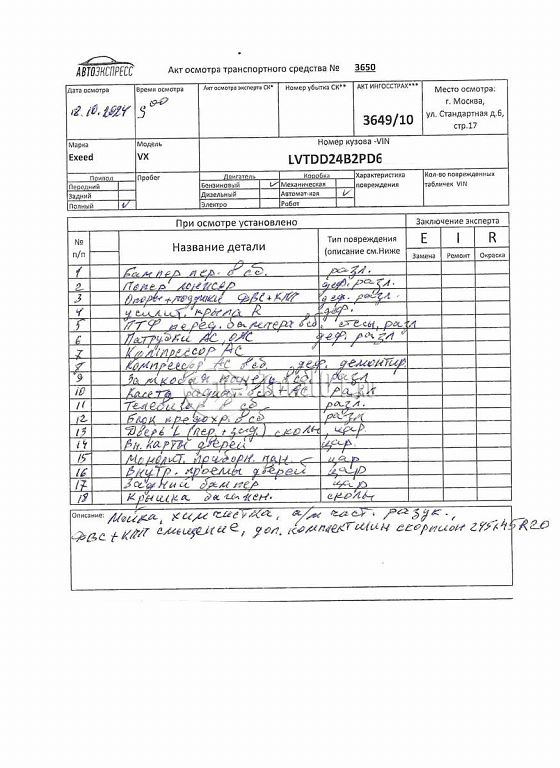 АВТОЭКСПРЕСС
Акт осмотра транспортного средства № 3650
Дата осмотра
12.10.2024
Время осмотра
9 00
Акт осмотра эксперта СК*
Номер убытка СК**
АКТ ИНГОССТРАХ***
3649/10
Место осмотра:
г. Москва,
ул. Стандартная д.6,
стр.17
Марка
Exeed
Модель
VX
Номер кузова -VIN
LVTDD24B2PD6
Привод
Передний
Задний
Полный
Пробег
Двигатель
Бензиновый
Дизельный
Электро
Коробка
Механическая
Автомат-кая
Робот
Характеристика
повреждения
Кол-во поврежденных
табличек VIN
При осмотре установлено
Заключение эксперта
№
п/п
Название детали
Тип повреждения
(описание см.Ниже
E I R
Замена Ремонт Окраска
1 Бампер пер. в сб. разл.
2 деф. разл.
3 Опоры + подушки ДВС+КПП деф. разл.
4 усилит. крыла R деф.
5 ПТФ перед. бампера в сб. разл
6 Патрубки АС, деф. разл
7 АС
8 Компрессор АС в сб. деф. демонтир.
9 панель в сб. разл
10 Кассета радиат. в сб + АС разл
11 в сб разл.
12 Блок предохр. в сб разл
13 Дверь L (пер. + зад.) сколы, цар.
14 Вн. карты дверей цар.
15 Монолит. приборн. пан. цар
16 Внутр. проемы дверей цар
17 Задний бампер цар
18 Крышка багажн. сколы
Описание: Мойка, химчистка, а/м част. разук.,
ДВС + КПП смещение, доп. комплект шин скорпион 245/45 R20